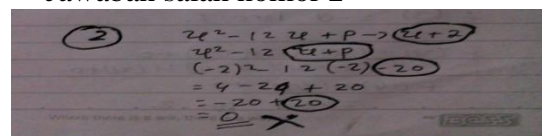 Jawaban salah nomor 2
2 x² - 12 x + p → x+2
x² - 12 x + p
(-2)² - 12 (-2) - 20
= 4 - 24 + 20
= -20 + 20
= 0 ×